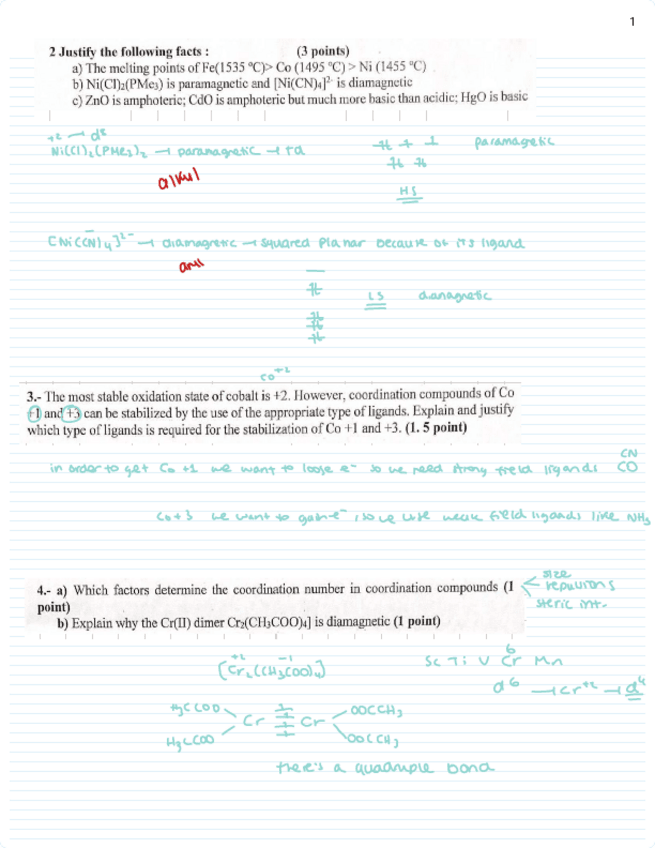 1
2 Justify the following facts : (3 points)
a) The melting points of Fe(1535 ºC)> Co (1495 ºC) > Ni (1455 ºC)
b) Ni(Cl)₂(PMe₃) is paramagnetic and [Ni(CN)₄]²⁻ is diamagnetic
c) ZnO is amphoteric; CdO is amphoteric but much more basic than acidic; HgO is basic
+2 → d⁸
Ni(Cl)₂(PMe₃)₂ → paramagnetic → td
paramagnetic
HS
[Ni(CN)₄]²⁻ → diamagnetic → squared planar because of its ligand
LS diamagnetic
Co⁺²
3.- The most stable oxidation state of cobalt is +2. However, coordination compounds of Co
+1 and +3 can be stabilized by the use of the appropriate type of ligands. Explain and justify
which type of ligands is required for the stabilization of Co +1 and +3. (1. 5 point)
CN
in order to get Co +1 we want to loose e⁻ so we need strong field ligands CO
Co+3 we want to gain e⁻, so we use weak field ligands like NH₃
4.- a) Which factors determine the coordination number in coordination compounds (1
point)
size
repulsions
steric int.
b) Explain why the Cr(II) dimer Cr₂(CH₃COO)₄] is diamagnetic (1 point)
+2 -1
[Cr₂(CH₃COO)₄]
6
Sc Ti V Cr Mn
d⁶ → Cr⁺² → d⁴
H₃CCOO Cr Cr OOCCH₃
H₃CCOO OOCCH₃
there's a quadruple bond